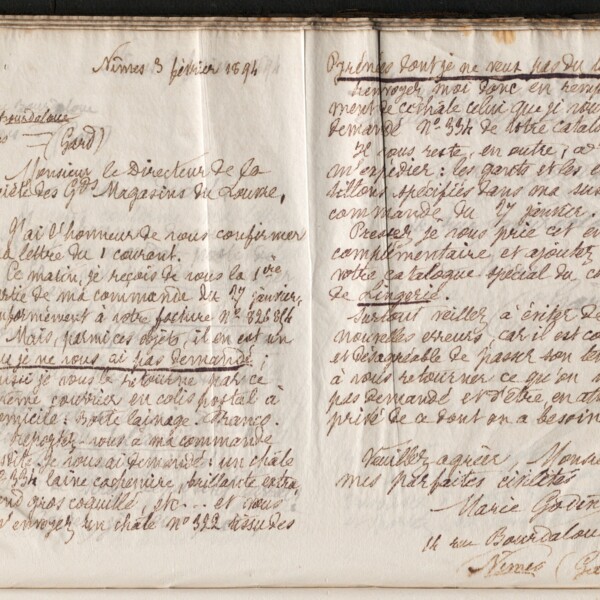 Nîmes 3 février 1894
Bourdaloue
(Gard)
Monsieur le Directeur de la
iété des Gds Magasins du Louvre,
J'ai l'honneur de vous confirmer
a lettre du 1 courant.
Ce matin, je reçois de vous la 1ère
rtie de ma commande du 27 janvier,
nformément à votre facture N° 326 384
Mais, parmi ces objets, il en est un
u je ne vous ai pas demandé;
ussi je vous le retourne par ce
ême courrier en colis postal à
omicile: Boîte lainage. Franco.
Reportez-vous à ma commande
sdite. Je vous ai demandé: un châle
° 334 laine cachemire, brillante extra,
ond gros coquillé, etc... et vous
m'envoyez un châle N° 322 tissu des
Pyrénées dont je ne veux pas du
Renvoyez moi donc en remp
ment de ce châle celui que je vous
demandé N° 334 de votre catalo
Il vous reste, en outre, à
m'expédier: les gants et les
tillons spécifiés dans ma sus
commande du 27 janvier.
Pressez je vous prie cet en
complémentaire et ajoutez
votre catalogue spécial du
de Lingerie.
Surtout veillez à éviter de
nouvelles erreurs, car il est
et désagréable de passer son te
à vous retourner ce qu'on
pas demandé et d'être en att
privé de ce dont on a besoin
Veuillez agréer, Monsie
mes parfaites civilités
Marie Godin
14 rue Bourdalou
Nîmes (Ga